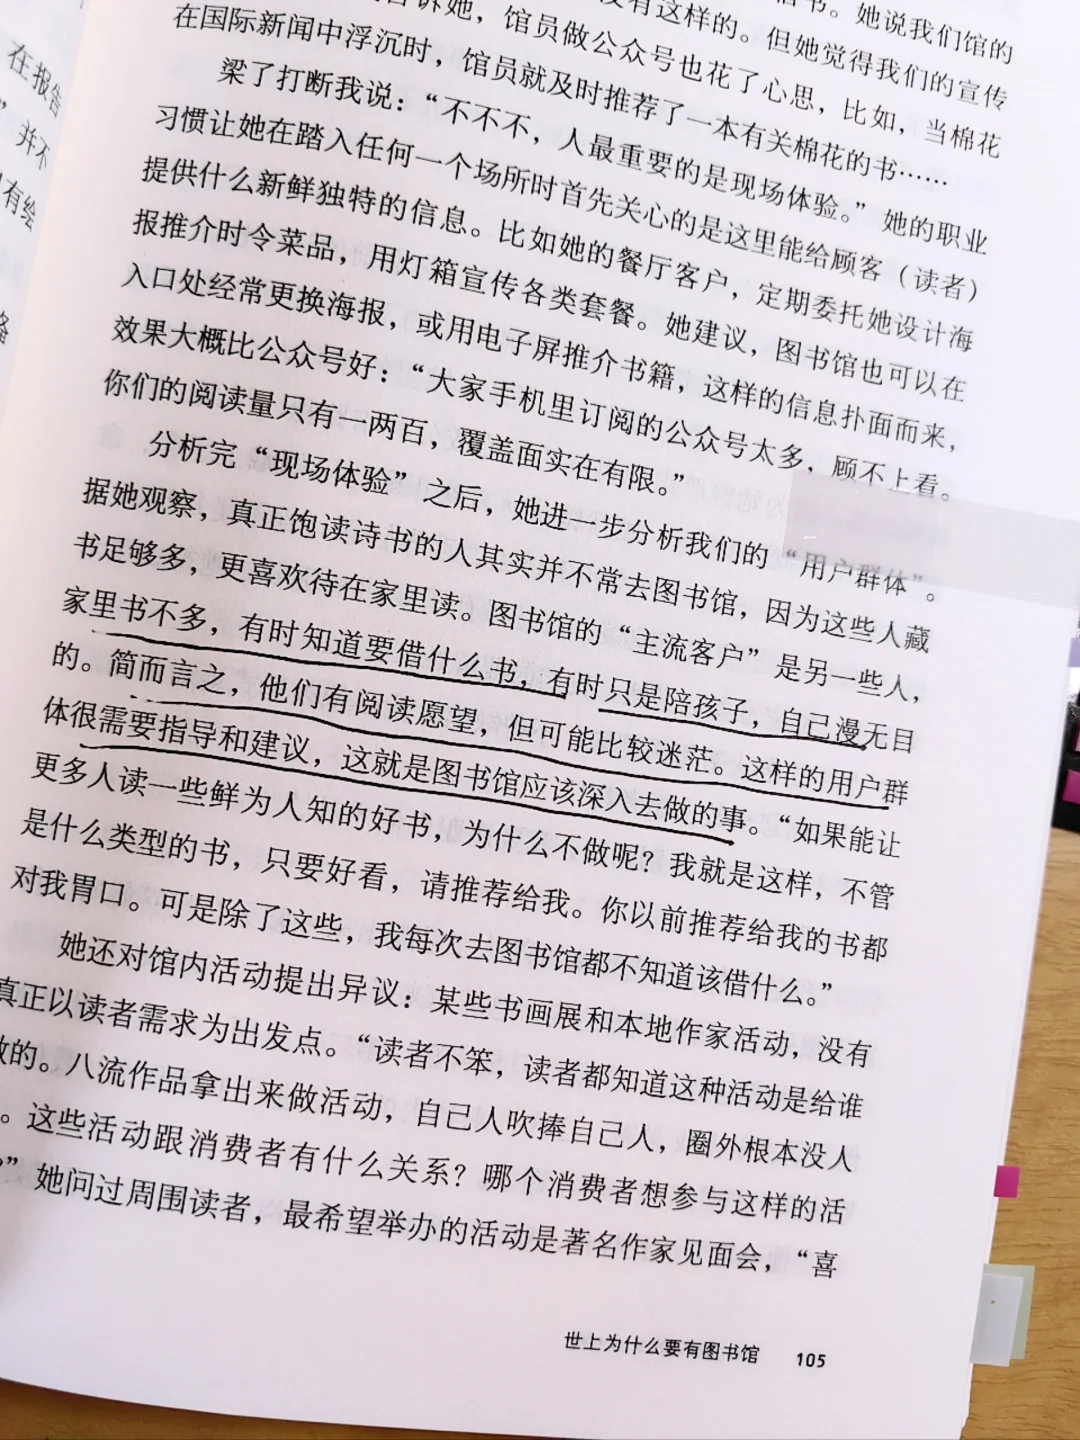 诉她，馆员做公众号也花了心思，比如，当棉花
没有这样的。但她觉得我们的宣传
书。她说我们馆的
在国际新闻中浮沉时，馆员就及时推荐了一本有关棉花的书……
梁了打断我说：“不不不，人最重要的是现场体验。”她的职业
习惯让她在踏入任何一个场所时首先关心的是这里能给顾客（读者）
提供什么新鲜独特的信息。比如她的餐厅客户，定期委托她设计海
报推介时令菜品，用灯箱宣传各类套餐。她建议，图书馆也可以在
入口处经常更换海报，或用电子屏推介书籍，这样的信息扑面而来，
效果大概比公众号好：“大家手机里订阅的公众号太多，顾不上看。
你们的阅读量只有一两百，覆盖面实在有限。”
分析完“现场体验”之后，她进一步分析我们的“用户群体”。
据她观察，真正饱读诗书的人其实并不常去图书馆，因为这些人藏
书足够多，更喜欢待在家里读。图书馆的“主流客户”是另一些人，
家里书不多，有时知道要借什么书，有时只是陪孩子，自己漫无目
的。简而言之，他们有阅读愿望，但可能比较迷茫。这样的用户群
体很需要指导和建议，这就是图书馆应该深入去做的事。“如果能让
更多人读一些鲜为人知的好书，为什么不做呢？我就是这样，不管
是什么类型的书，只要好看，请推荐给我。你以前推荐给我的书都
对我胃口。可是除了这些，我每次去图书馆都不知道该借什么。”
她还对馆内活动提出异议：某些书画展和本地作家活动，没有
真正以读者需求为出发点。“读者不笨，读者都知道这种活动是给谁
做的。八流作品拿出来做活动，自己人吹捧自己人，圈外根本没人
。这些活动跟消费者有什么关系？哪个消费者想参与这样的活
”她问过周围读者，最希望举办的活动是著名作家见面会，“喜
世上为什么要有图书馆 105
在报告
”并不
有绘